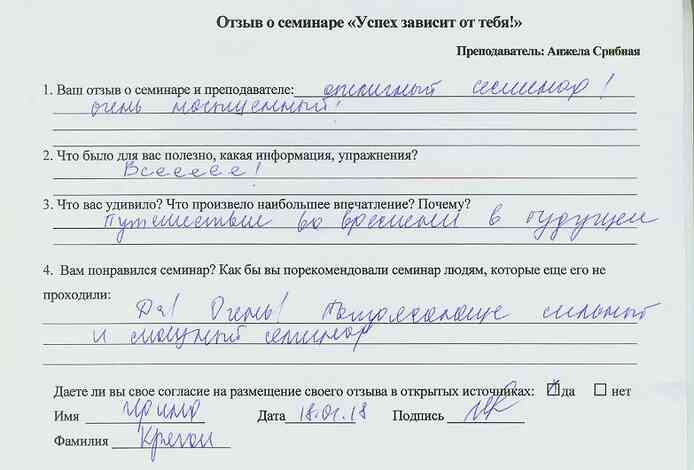 Отзыв о семинаре «Успех зависит от тебя!»
Преподаватель: Анжела Срибная
1. Ваш отзыв о семинаре и преподавателе: отличный семинар!
очень насыщенный!
2. Что было для вас полезно, какая информация, упражнения?
Всеееее!
3. Что вас удивило? Что произвело наибольшее впечатление? Почему?
Путешествие во времени в будущем
4. Вам понравился семинар? Как бы вы порекомендовали семинар людям, которые еще его не
проходили:
Да! Очень! Потрясающе сильный
и мощный семинар
Даете ли вы свое согласие на размещение своего отзыва в открытых источниках: да нет
Имя Ирина Дата 18.01.18 Подпись
Фамилия